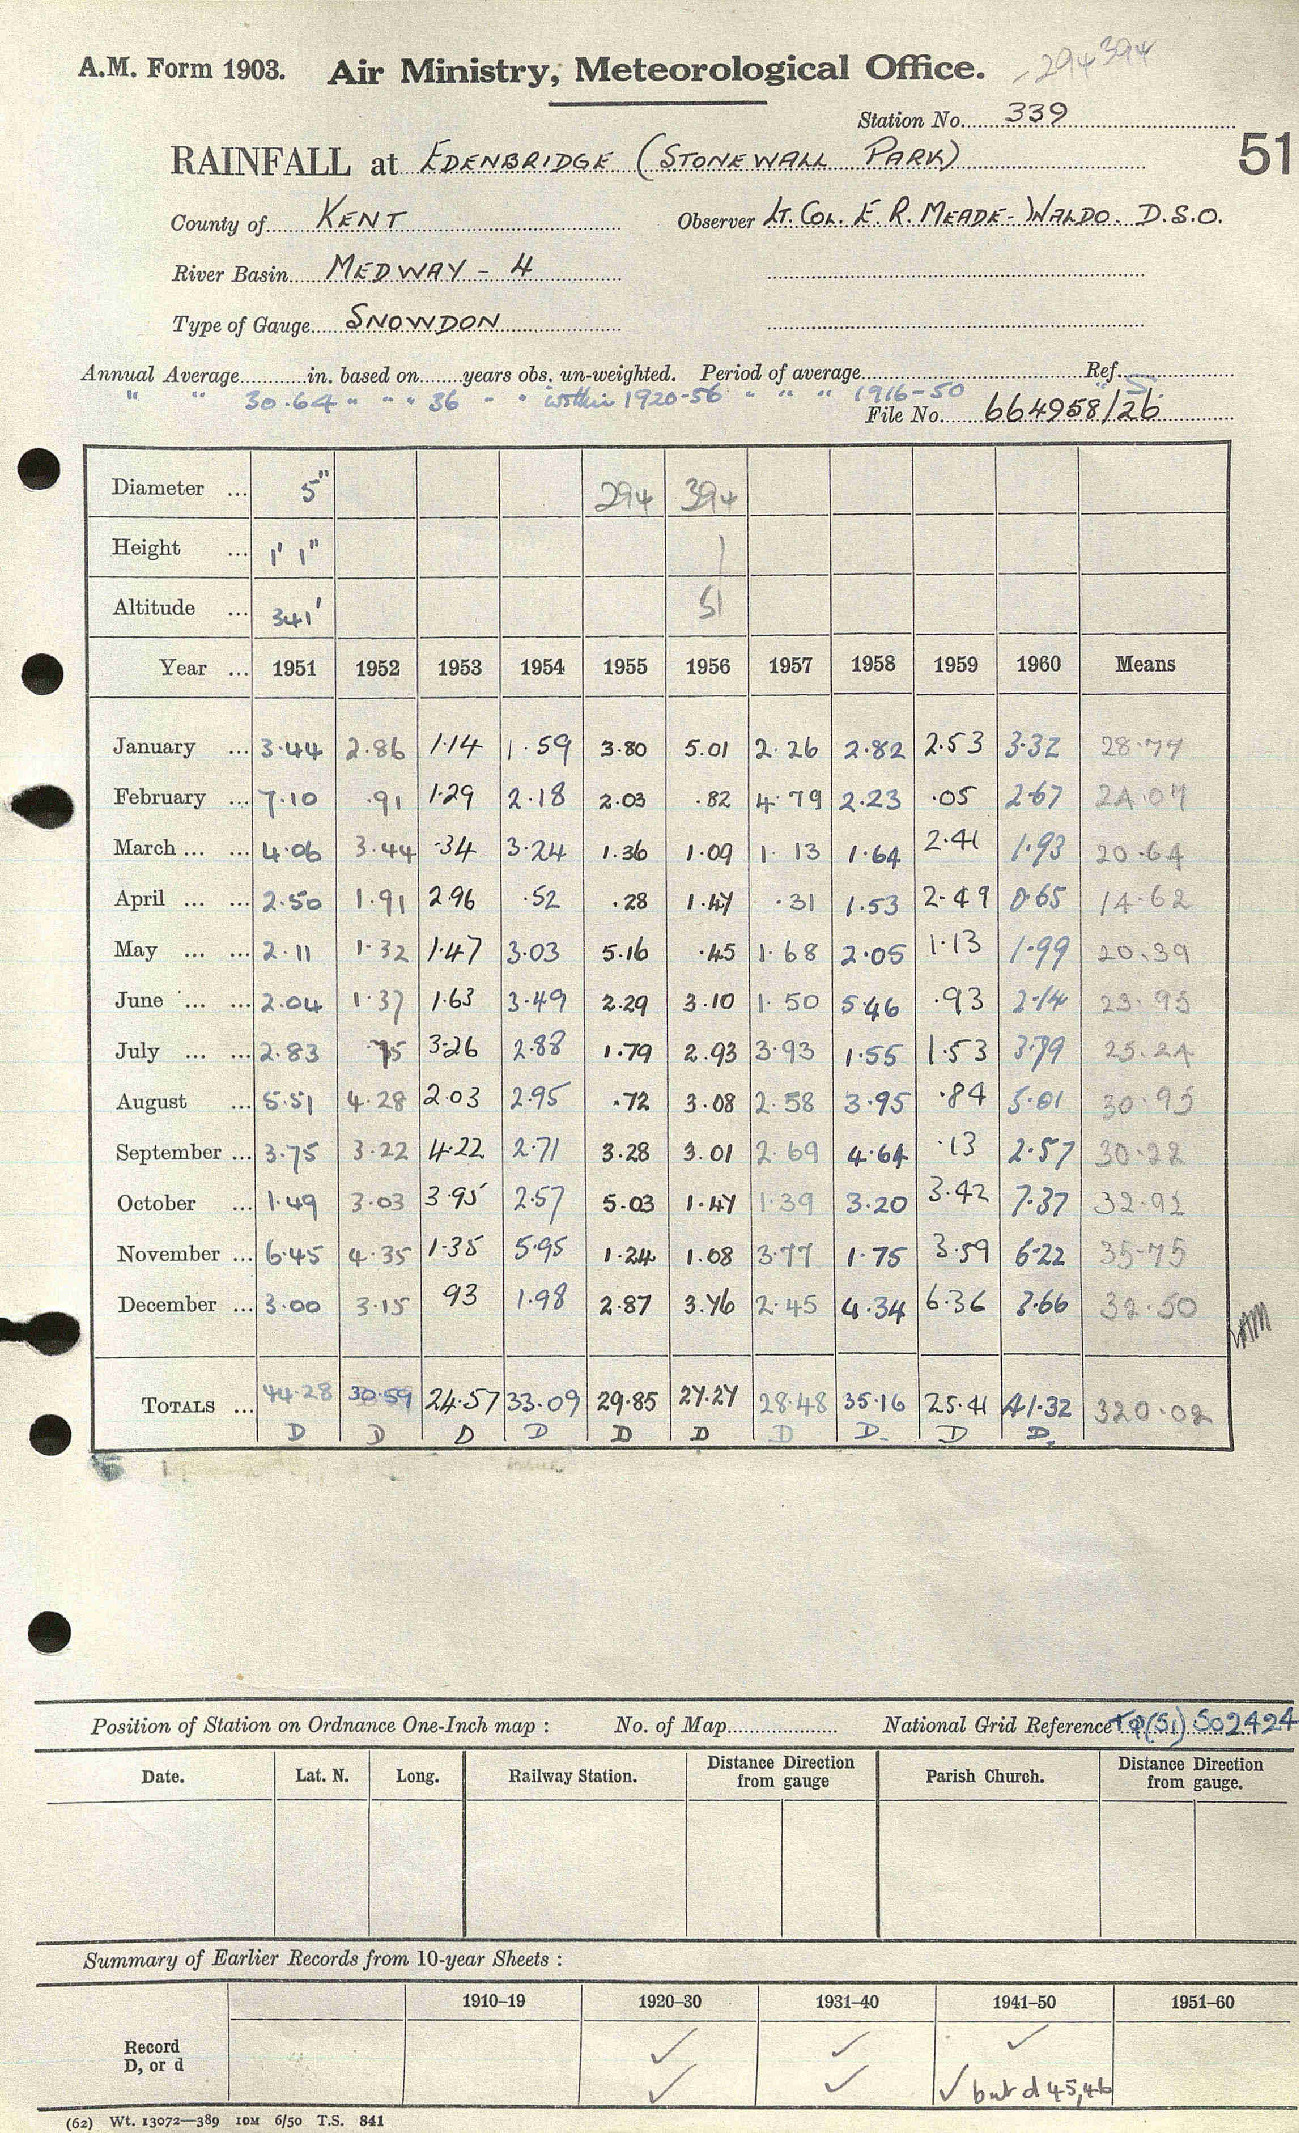 A.M. Form 1903. Air Ministry, Meteorological Office. 294 394
Station No. 339
51
RAINFALL at EDENBRIDGE (STONEWALL PARK)
County of KENT Observer LT. COL. E. R. MEADE-WALDO. D.S.O.
River Basin MEDWAY - 4
Type of Gauge SNOWDON
Annual Average in. based on years obs. un-weighted. Period of average Ref.
" " 30.64 " " " 36 " " within 1920-56 " " " 1916-50 " S.
File No. 664958/26
Diameter ... 5" 294 394
Height ... 1' 1" 1
Altitude ... 341' 51
Year ... 1951 1952 1953 1954 1955 1956 1957 1958 1959 1960 Means
January ... 3.44 2.86 1.14 1.59 3.80 5.01 2.26 2.82 2.53 3.32 28.77
February ... 7.10 .91 1.29 2.18 2.03 .82 4.79 2.23 .05 2.67 24.07
March ... ... 4.06 3.44 .34 3.24 1.36 1.09 1.13 1.64 2.41 1.93 20.64
April ... ... 2.50 1.91 2.96 .52 .28 1.47 .31 1.53 2.49 0.65 14.62
May ... ... 2.11 1.32 1.47 3.03 5.16 .45 1.68 2.05 1.13 1.99 20.39
June ... ... 2.04 1.37 1.63 3.49 2.29 3.10 1.50 5.46 .93 2.14 23.95
July ... ... 2.83 .75 3.26 2.88 1.79 2.93 3.93 1.55 1.53 3.79 25.24
August ... 5.51 4.28 2.03 2.95 .72 3.08 2.58 3.95 .84 5.01 30.95
September ... 3.75 3.22 4.22 2.71 3.28 3.01 2.69 4.64 .13 2.57 30.22
October ... 1.49 3.03 3.95 2.57 5.03 1.47 1.39 3.20 3.42 7.37 32.92
November ... 6.45 4.35 1.35 5.95 1.24 1.08 3.77 1.75 3.59 6.22 35.75
December ... 3.00 3.15 93 1.98 2.87 3.76 2.45 4.34 6.36 3.66 32.50
TOTALS ... 44.28 30.59 24.57 33.09 29.85 27.27 28.48 35.16 25.41 41.32 320.02
D D D D D D D D. D D.
Position of Station on Ordnance One-Inch map : No. of Map National Grid Reference TQ(51) 502424
Date. Lat. N. Long. Railway Station. Distance from gauge Direction Parish Church. Distance from gauge. Direction
Summary of Earlier Records from 10-year Sheets :
1910–19 1920–30 1931–40 1941–50 1951–60
Record ✓ ✓ ✓
D, or d ✓ ✓ ✓ but d 45,46
(62) Wt. 13072—389 10M 6/50 T.S. 841